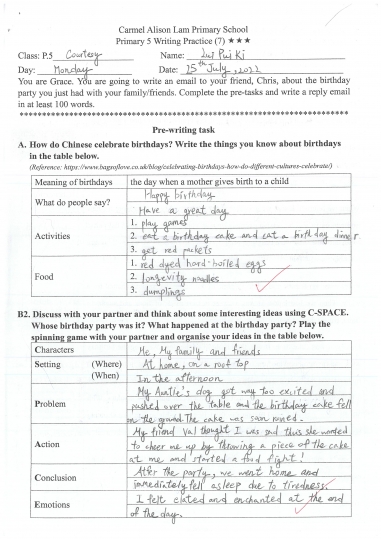 Carmel Alison Lam Primary School
Primary 5 Writing Practice (7) ★★★
Class: P.5 Courtesy Name: Lui Pui Ki
Day: Monday Date: 25th July, 2022
You are Grace. You are going to write an email to your friend, Chris, about the birthday
party you just had with your family/friends. Complete the pre-tasks and write a reply email
in at least 100 words.
Pre-writing task
A. How do Chinese celebrate birthdays? Write the things you know about birthdays
in the table below.
(Reference: https://www.bagsoflove.co.uk/blog/celebrating-birthdays-how-do-different-cultures-celebrate/)
Meaning of birthdays the day when a mother gives birth to a child
What do people say? Happy birthday
Have a great day
Activities 1. play games
2. eat a birthday cake and eat a birthday dinner
3. get red packets
Food 1. red dyed hard-boiled eggs
2. longevity noodles
3. dumplings
B2. Discuss with your partner and think about some interesting ideas using C-SPACE.
Whose birthday party was it? What happened at the birthday party? Play the
spinning game with your partner and organise your ideas in the table below.
Characters Me, My family and friends
Setting (Where) At home, on a roof top
(When) In the afternoon
Problem My Auntie's dog got way too excited and
pushed over the table and the birthday cake fell
on the ground. The cake was soon ruined.
Action My friend Val thought I was sad thus she wanted
to cheer me up by throwing a piece of the cake
at me and started a food fight!
Conclusion After the party, we went home and
immediately fell asleep due to tiredness.
Emotions I felt elated and enchanted at the end
of the day.